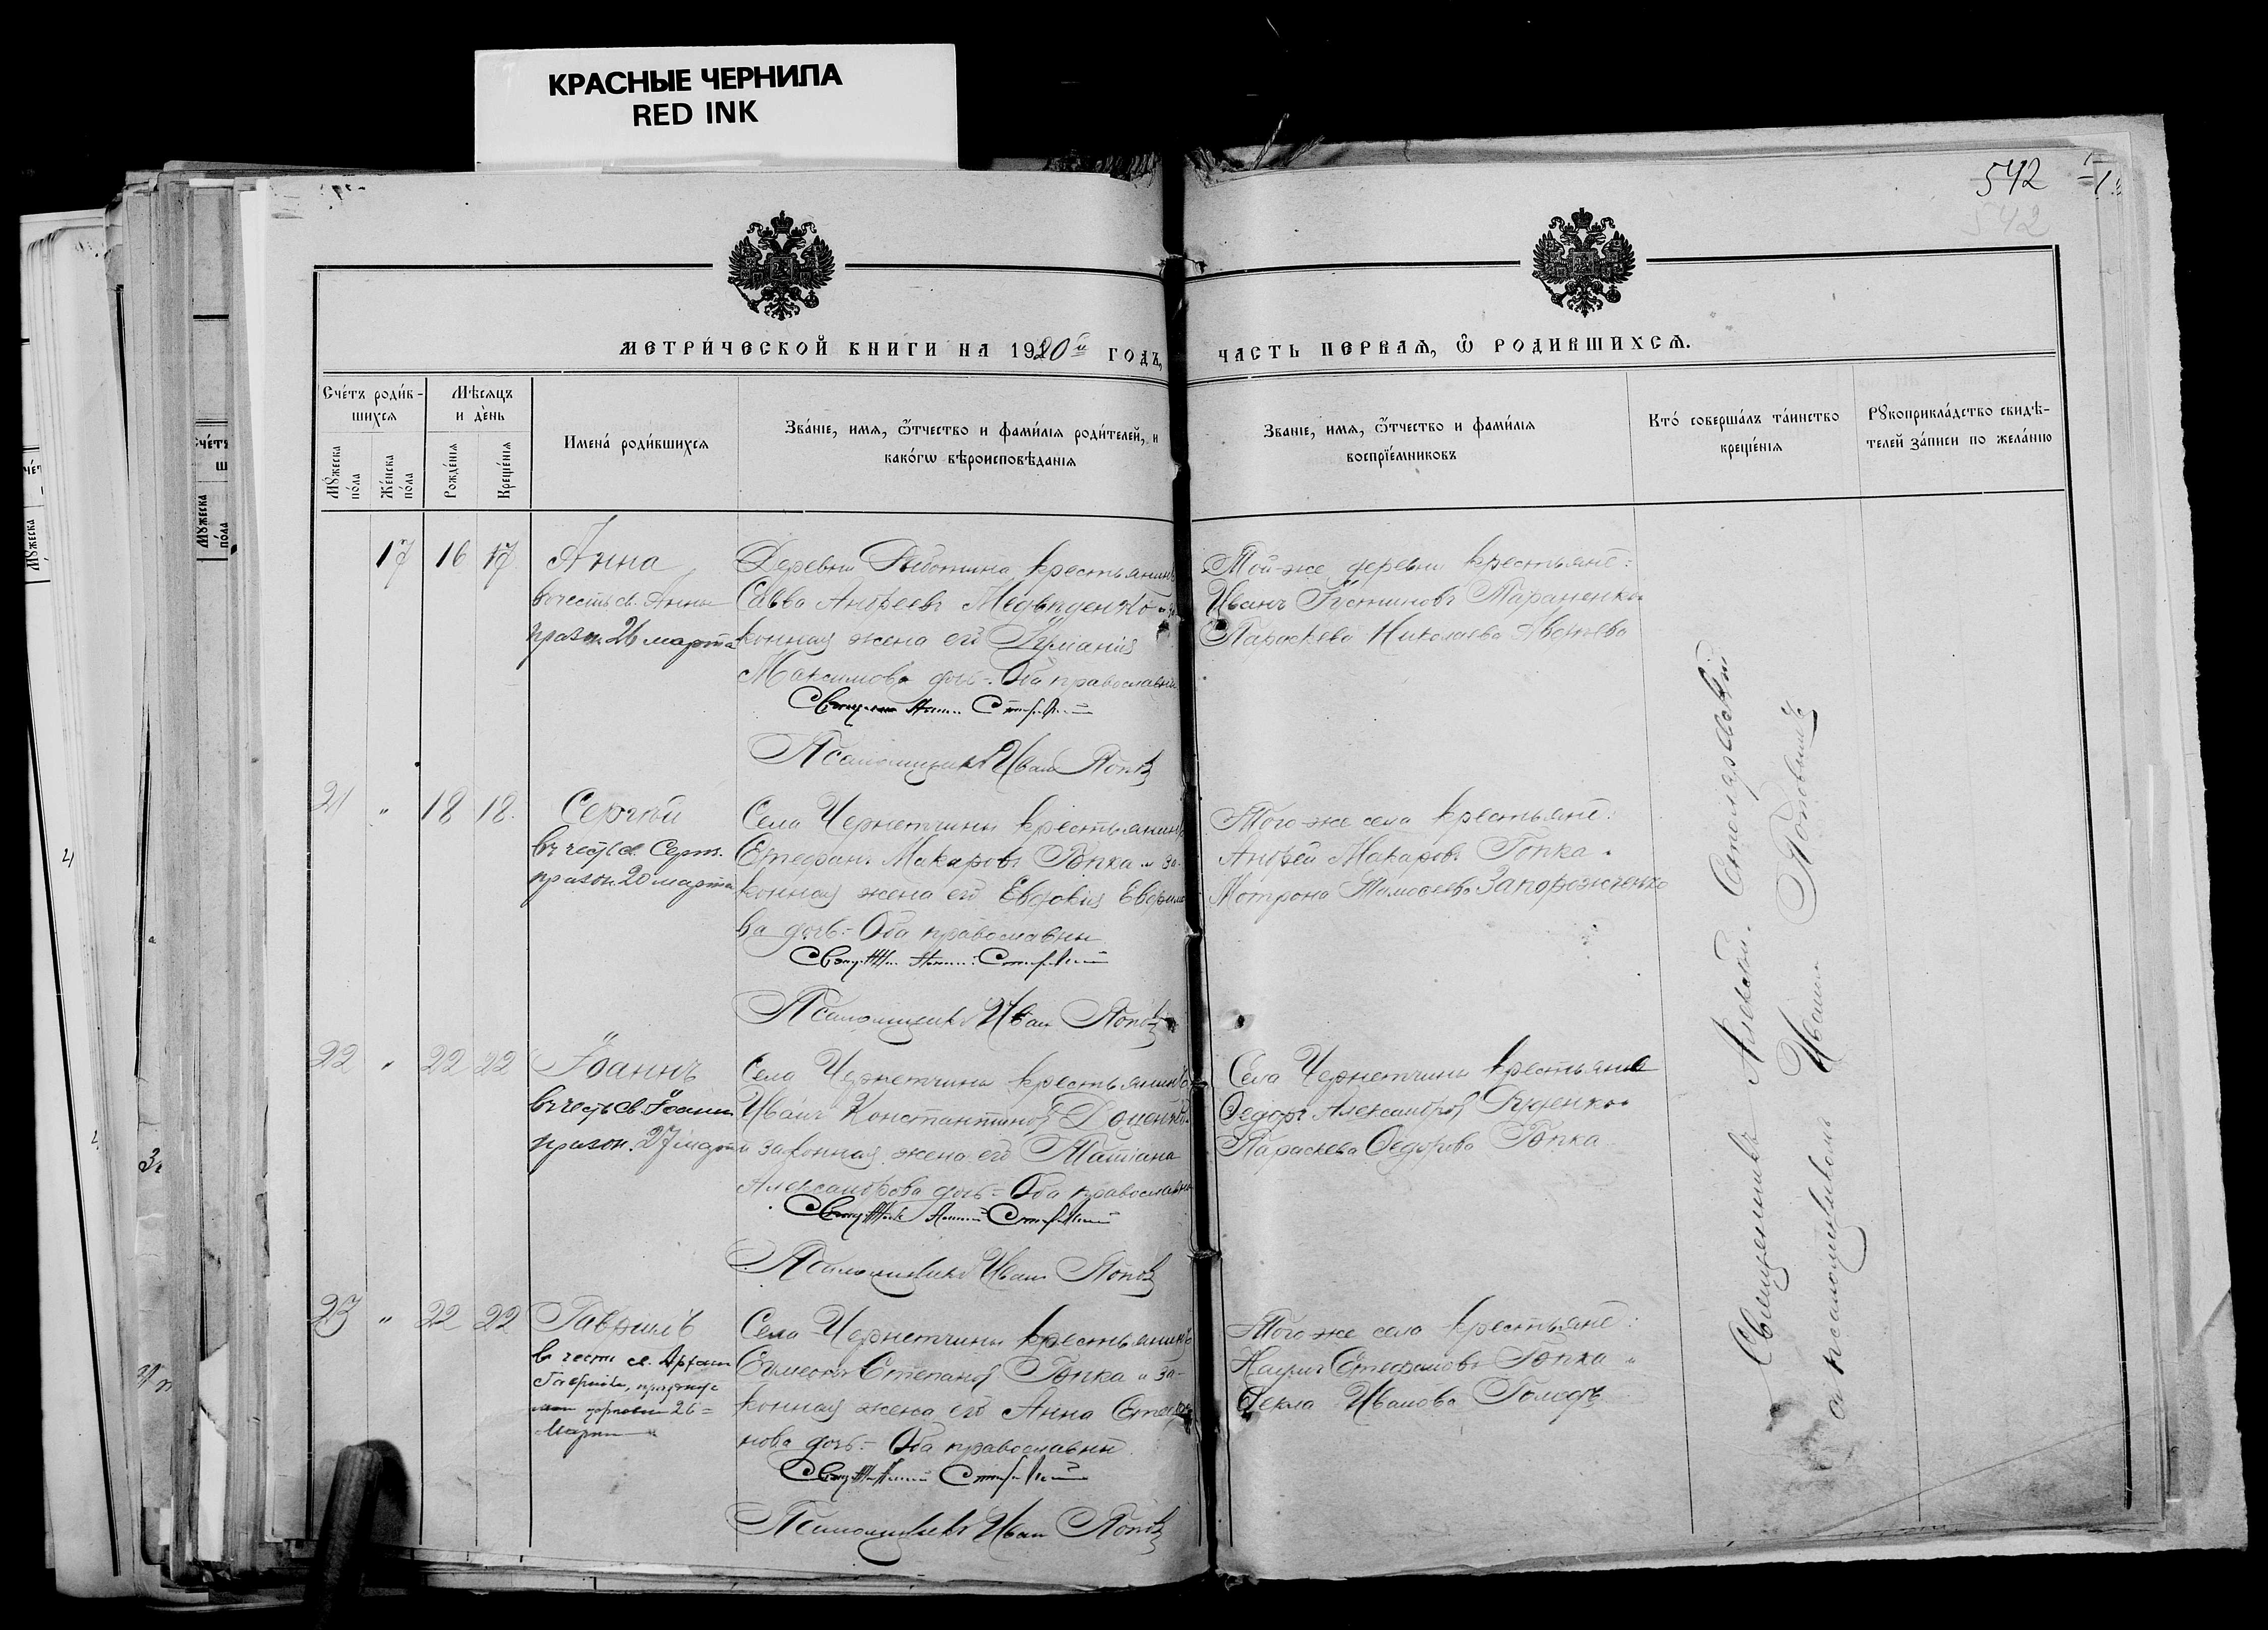 КРАСНЫЕ ЧЕРНИЛА
RED INK
542
542
МЕТРИ́ЧЕСКОЙ КНИГИ НА 1920й ГОДЪ,
ЧАСТЬ ПЕРВАѦ, Ѿ РОДИВШИХСѦ.
Сче́тъ роди́в-
шихсѧ
Мꙋ́жеска по́ла
Же́нска по́ла
Мѣ́сяцъ
и де́нь
Рожде́нїѧ
Креще́нїѧ
Имена́ роди́вшихсѧ
Зва́нїе, имѧ, ѿтчество и фами́лїѧ роди́телей, и
како́гѡ вѣроисповѣ́данїѧ
Зва́нїе, имѧ, ѿтчество и фами́лїѧ
воспрїе́мниковъ
Кто́ соверша́лъ та́инство
креще́нїѧ
Рꙋкоприкла́дство свидѣ́-
телей за́писи по жела́нїю
17 16 17 Анна
в честь св. Анны
празн. 26 марта
Деревни крестьянинъ
Савва Андреевъ Медведенко и за-
конная жена его
Максимова дочь - Оба православны
Псаломщикъ Иван
Той-же деревни крестьяне:
Иванъ Тараненко и
Параскева Николаева
21 " 18 18 Сергій
въ честь св. Серг.
празн. 20 марта
Села Чернетчины крестьянинъ
Стефанъ Макаровъ Гопка и за-
конная жена его Евдокия Евфимо
ва дочь - Оба православны
Псаломщикъ Иван
Того-же села крестьяне:
Андрей Макаровъ Гопка и
Мотрона Тимофеева Запорожченко
22 " 22 22 Іоаннъ
въ честь св. Іоанна
празн. 27 марта
Села Чернетчины крестьянинъ
Иванъ Константинов Доценко
и законная жена его Татіана
Александрова дочь - Оба православны
Псаломщикъ Иван
Села Чернетчины крестьяне
Федоръ Александров Луценко и
Параскева Федорова Гопка
23 " 22 22 Гавріилъ
в честь св. Архан
Гавріила,
26
Марта
Села Чернетчины крестьянинъ
Симеонъ Степанов Гопка и за-
конная жена его Анна Стефа
нова дочь - Оба православны
Псаломщикъ Иван
Того-же села крестьяне:
Наумъ Стефановъ Гопка и
Фекла Иванова
Священникъ Алексій
съ псаломщикомъ Иваномъ Поповымъ